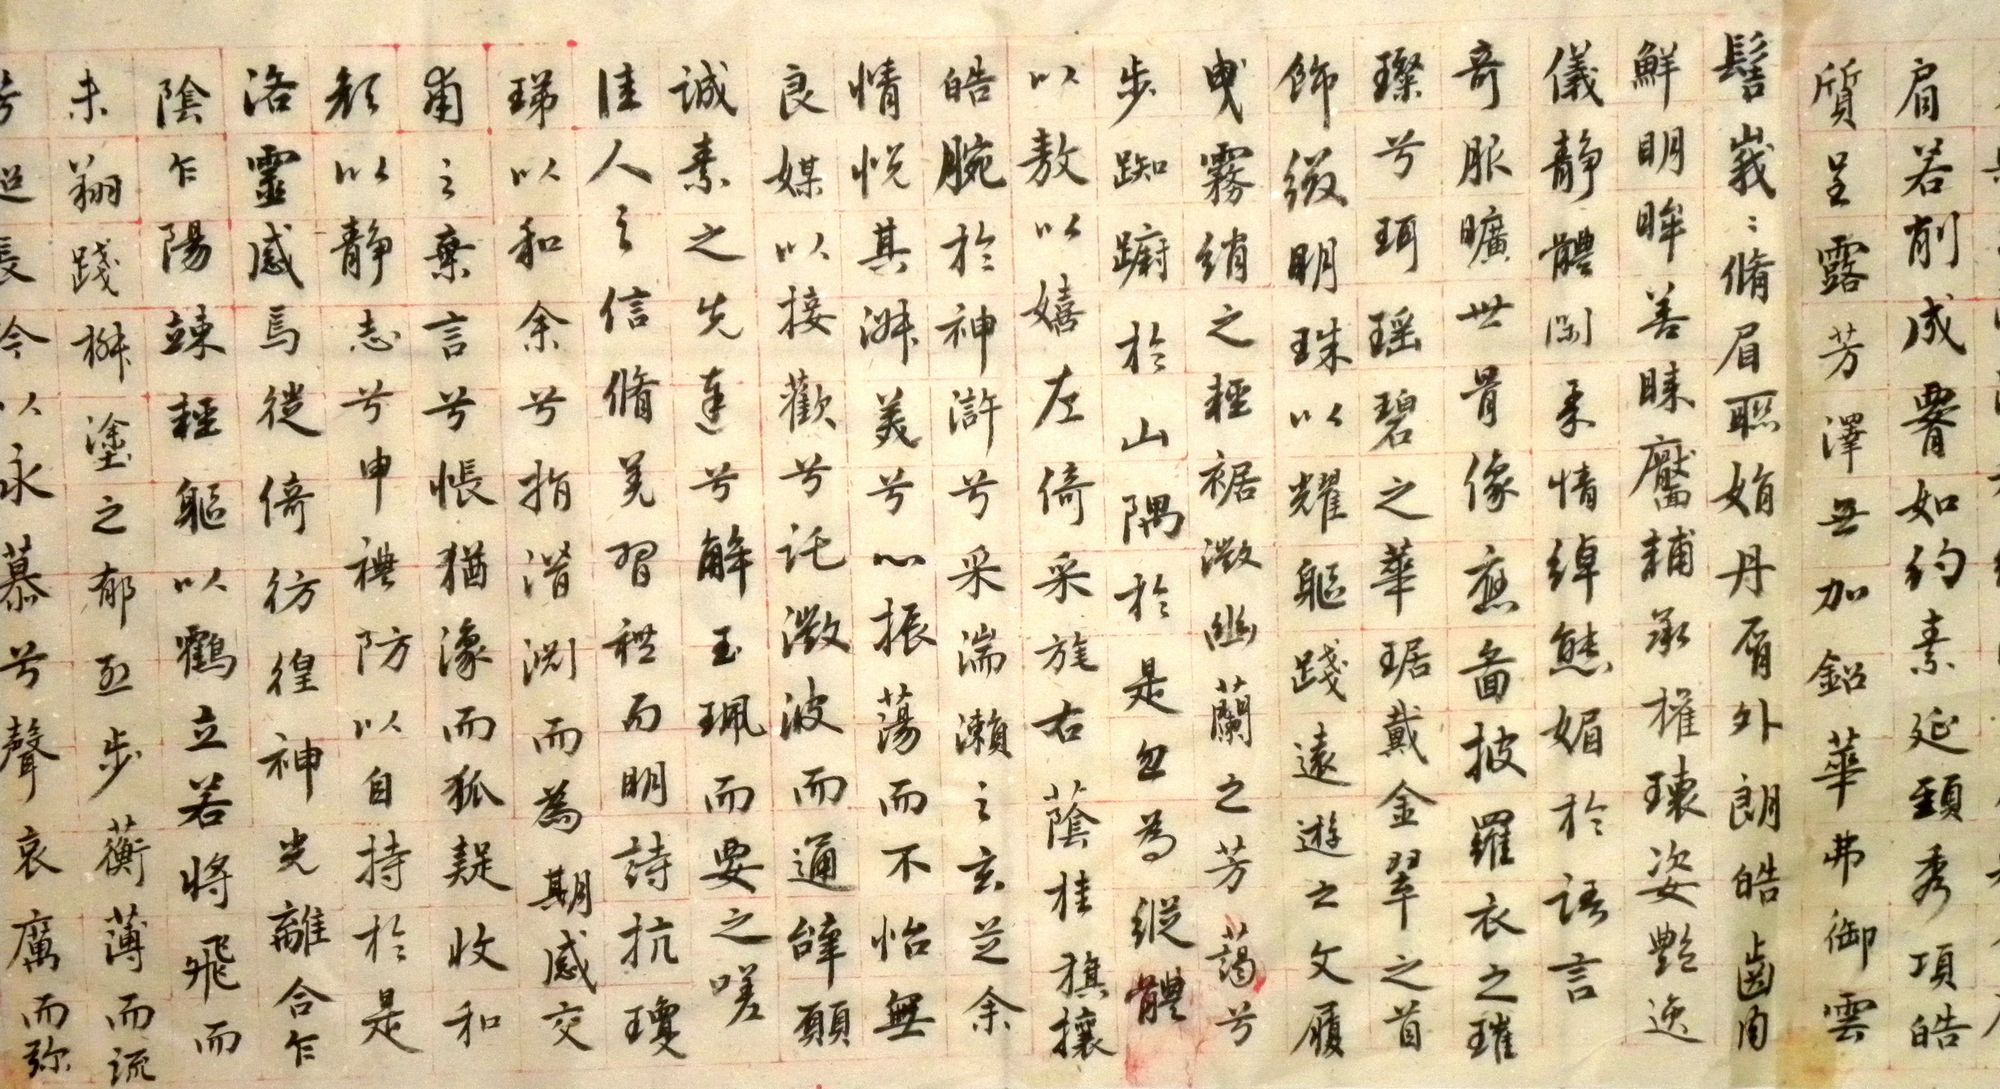 肩若削成腰如約素延頸秀項皓
質呈露芳澤無加鉛華弗御雲
髻峩〻脩眉聯娟丹脣外朗皓齒内
鮮明眸善睞靨輔承權瓌姿艷逸
儀靜體閑柔情綽態媚於語言
奇服曠世骨像應圖披羅衣之璀
璨兮珥瑶碧之華琚戴金翠之首
飾綴明珠以耀軀踐遠遊之文履
曳霧綃之輕裾微幽蘭之芳藹兮
步踟躕於山隅於是忽為縱體
以敖以嬉左倚采旄右蔭桂旗攘
皓腕於神滸兮采湍瀨之玄芝余
情悅其淑美兮心振蕩而不怡無
良媒以接歡兮託微波而通辭願
誠素之先達兮解玉珮而要之嗟
佳人之信脩羌習禮而明詩抗瓊
珶以和余兮指潛淵而為期感交
甫之棄言兮悵猶豫而狐疑收和
顏以靜志兮申禮防以自持於是
洛靈感焉徙倚彷徨神光離合乍
陰乍陽竦輕軀以鶴立若將飛而
未翔踐椒塗之郁烈步蘅薄而流
芳超長吟以永慕兮聲哀厲而弥